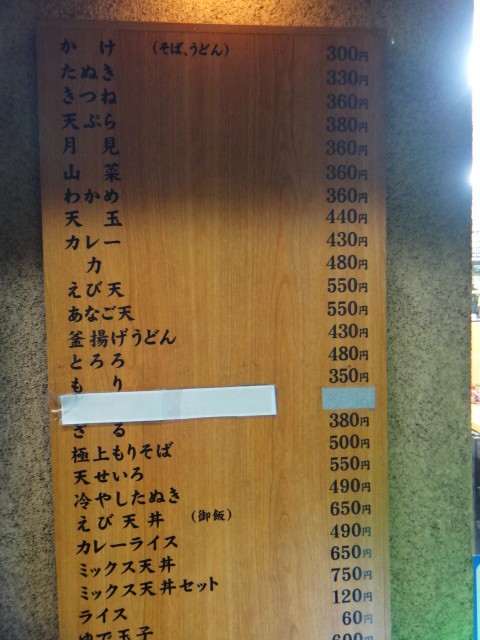 かけ (そば、うどん) 300円
たぬき 330円
きつね 360円
天ぷら 380円
月見 360円
山菜 360円
わかめ 360円
天玉 440円
カレー 430円
力 480円
えび天 550円
あなご天 550円
釜揚げうどん 430円
とろろ 480円
もり 350円
ざる 380円
極上もりそば 500円
天せいろ 550円
冷やしたぬき 490円
えび天丼 (御飯) 650円
カレーライス 490円
ミックス天丼 650円
ミックス天丼セット 750円
ライス 120円
ゆで玉子 60円